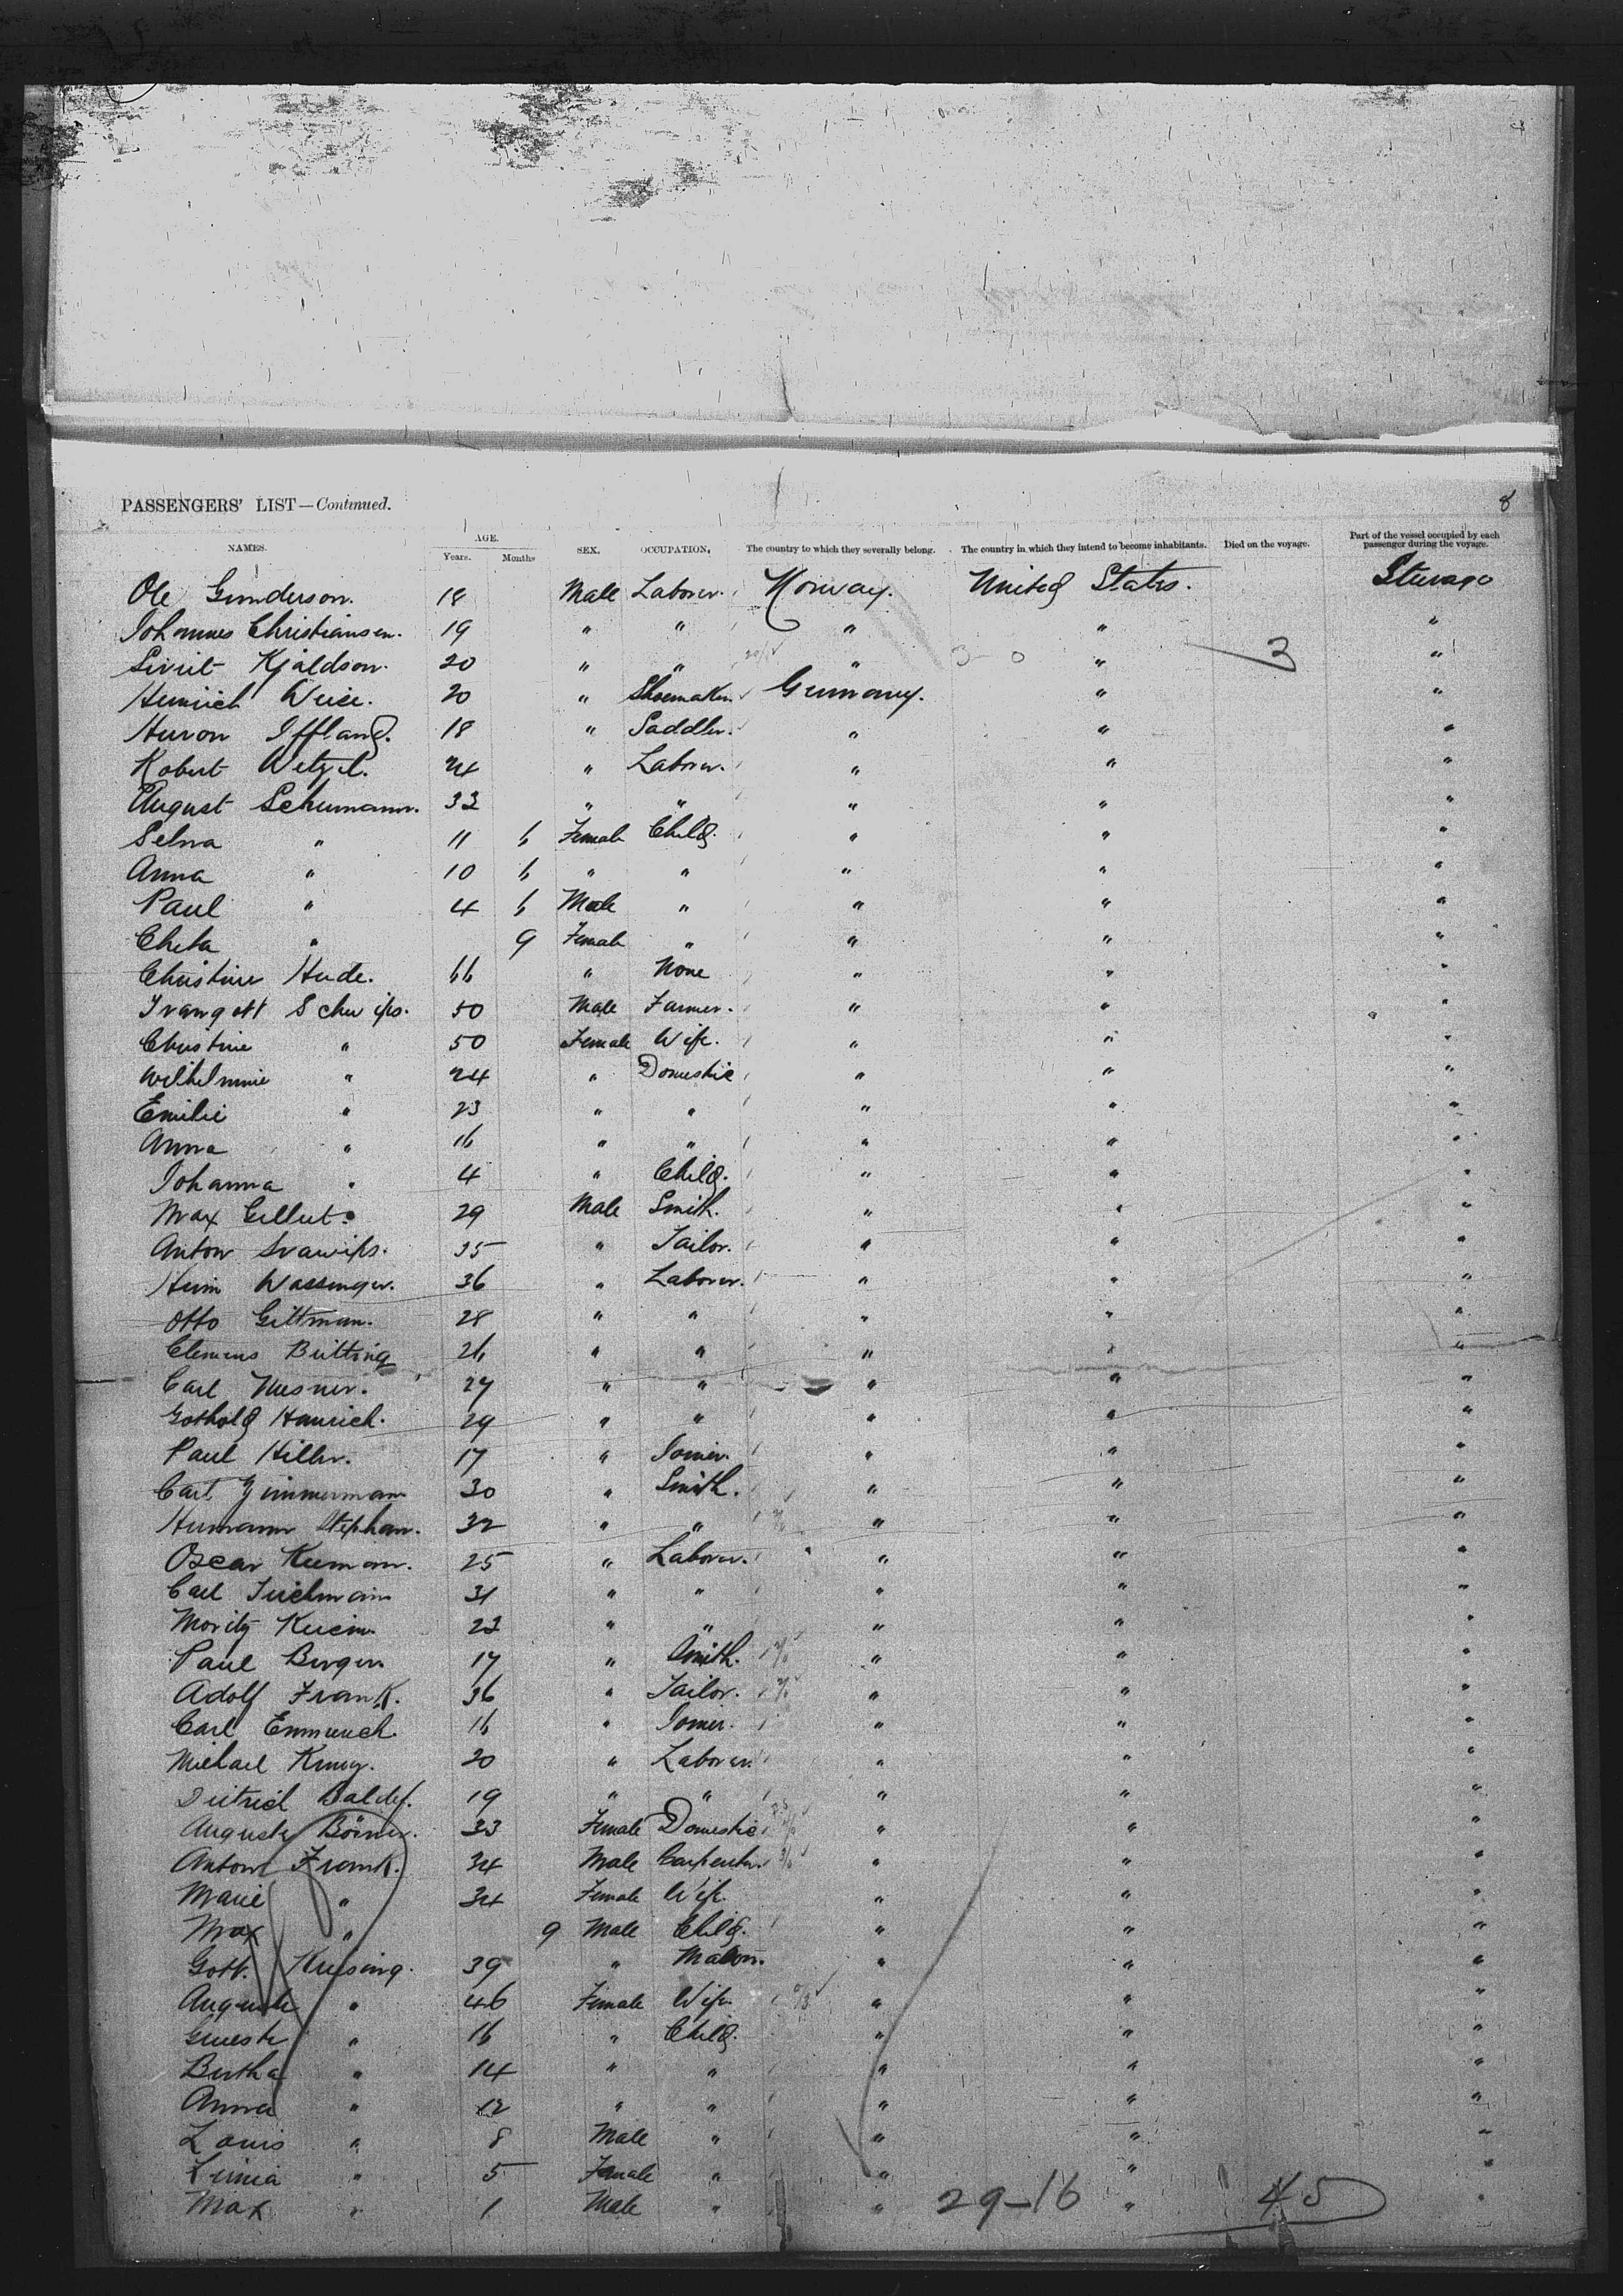 8
PASSENGERS' LIST—Continued.
NAMES. AGE. Years. Months SEX. OCCUPATION, The country to which they severally belong. The country in which they intend to become inhabitants. Died on the voyage. Part of the vessel occupied by each passenger during the voyage.
Ole Gunderson. 18 Male Laborer. Norway. United States. Steerage
Johannes Christiansen. 19 " " " " "
Kjaldson. 20 " " " 3 - 0 " 3 "
Heinrich Weise. 20 " Shoemaker Germany. " "
Iffland. 18 " Saddler. " " "
Robert Wetzel. 24 " Laborer. " " "
August Schumann. 33 " " " " "
Selma " 11 6 Female Child. " " "
Anna " 10 6 " " " " "
Paul " 4 6 Male " " " "
" 9 Female " " " "
Christine Hude. 66 " None " " "
50 Male Farmer. " " "
Christine " 50 Female Wife. " " "
Wilhelmine " 24 " Domestic " " "
Emilie " 23 " " " " "
Anna " 16 " " " " "
Johanna " 4 " Child. " " "
Max Gellert. 29 Male Smith. " " "
Anton 35 " Tailor. " " "
Wassenger. 36 " Laborer. " " "
Otto Giltman. 28 " " " " "
Clemens Bütting 26 " " " " "
Carl 27 " " " " "
Gothold Hanrich. 29 " " " " "
Paul Hiller. 17 " Joiner. " " "
Carl Zimmermann 30 " Smith. " " "
Hermann Stephan. 32 " " " " "
Oscar 25 " Laborer. " " "
Carl 31 " " " " "
Moritz 23 " " " " "
Paul Berger 17 " Smith. " " "
Adolf Frank. 36 " Tailor. " " "
Carl 16 " Joiner. " " "
Michael 20 " Laborer. " " "
Dietrich 19 " " " " "
Auguste Börner. 33 Female Domestic " " "
Anton Frank. 34 Male Carpenter " " "
Marie " 34 Female Wife. " " "
Max " 9 Male Child. " " "
Gott. 39 " Mason. " " "
Auguste " 46 Female Wife " " "
" 16 " Child. " " "
Bertha " 14 " " " " "
Anna " 12 " " " " "
Louis " 8 Male " " " "
" 5 Female " " " "
Max " 1 Male " " 29-16 " 45 "